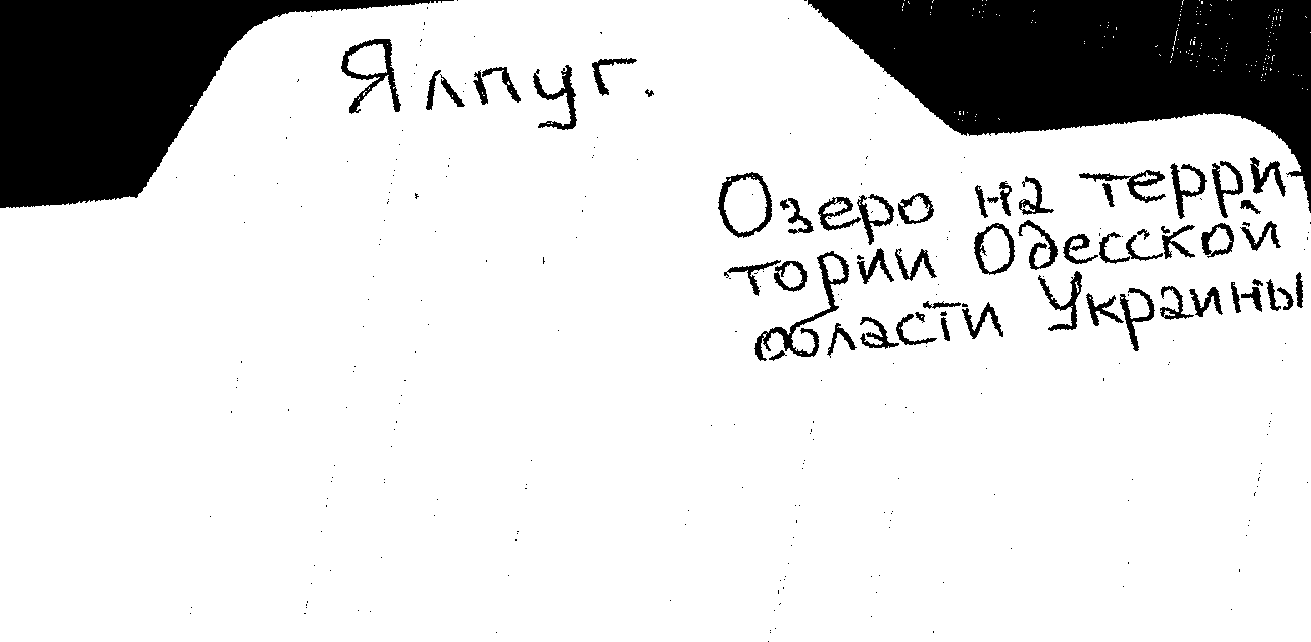 Ялпуг.
Озеро на терри-
тории Одесской
области Украины